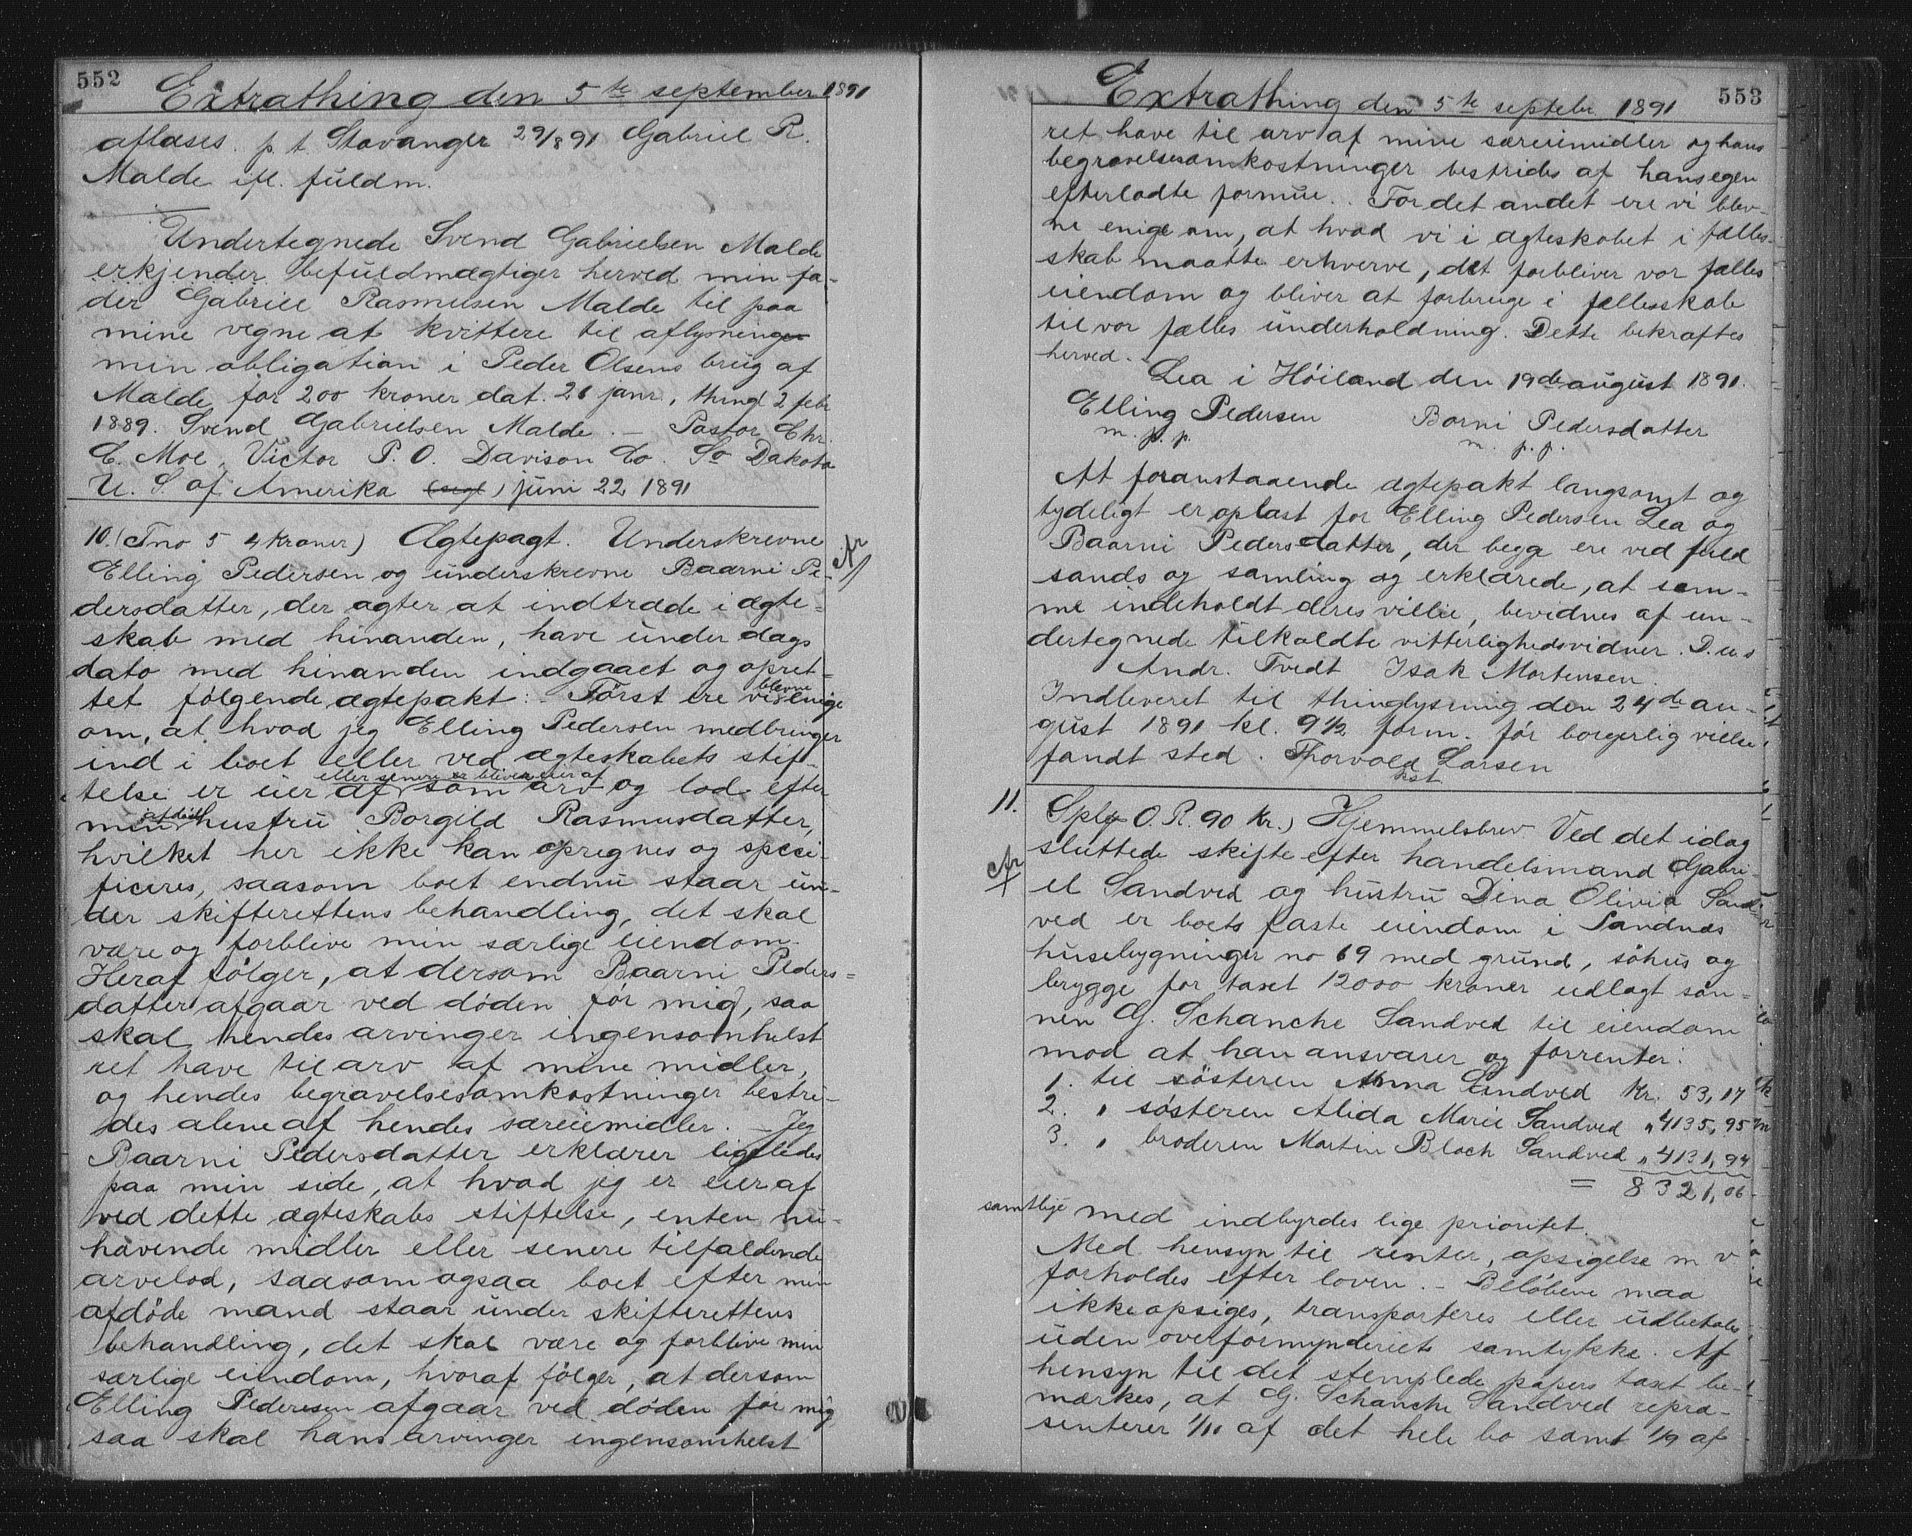 552
Extrathing den 5te september 1891
aflæses. p. t. Stavanger 29/8 91 Gabriel R.
Malde ifl. fuldm.
Undertegnede Svend Gabrielsen Malde
erkjender befuldmægtiger herved min fa-
der Gabriel Rasmusen Malde til paa
mine vegne at kvittere til aflysninger
min obligation i Peder Olsens brug af
Malde for 200 kroner dat. 26 janr, thingl 2 febr
1889. Svend Gabrielsen Malde. — Pastor Chr.
C. Moe, Victor P. O. Davison Co. So Dakota
U. S. of Amerika (segl) juni 22 1891
10. (Tno 5 4 kroner) Ægtepagt. Underskrevne
Elling Pedersen og underskrevne Baarni Pe-
dersdatter, der agter at indtræde i ægte-
skab med hinanden, have under dags
dato med hinanden indgaaet og opret-
tet følgende ægtepakt: Først ere vi blevne enige
om, at hvad jeg Elling Pedersen medbringer
ind i boet eller ved ægteskabets stif-
telse er eier af eller senere bliver eier af som arv og lod efter
min afdøde hustru Borgild Rasmusdatter,
hvilket her ikke kan opregnes og speci-
ficeres, saasom boet endnu staar un-
der skifterettens behandling, det skal
være og forblive min særlige eiendom.
Heraf følger, at dersom Baarni Peders-
datter afgaar ved døden før mig, saa
skal hendes arvinger ingensomhelst
ret have til arv af mine midler,
og hendes begravelsesomkostninger bestri-
des alene af hendes særeiemidler. — Jeg
Baarni Pedersdatter erklærer ligeledes
paa min side, at hvad jeg er eier af
ved dette ægteskabs stiftelse, enten nu-
havende midler eller senere tilfaldende
arvelod, saasom ogsaa boet efter min
afdøde mand staar under skifterettens
behandling, det skal være og forblive min
særlige eiendom, hvoraf følger, at dersom
Elling Pedersen afgaar ved døden før mig
saa skal hans arvinger ingensomhelst
553
Extrathing den 5te septebr 1891
ret have til arv af mine særeiemidler og hans
begravelsesomkostninger bestrides af hans egen
efterladte formue. . For det andet ere vi blev-
ne enige om, at hvad vi i ægteskabet i fælles-
skab maatte erhverve, det forbliver vor fælles
eiendom og bliver at forbruge i fællesskab
til vor fælles underholdning. Dette bekræftes
herved.
Lea i Høiland den 19de august 1891.
Elling Pedersen Borni Pedersdatter
m. p. p. m. p. p.
At foranstaaende ægtepakt langsomt og
tydeligt er oplæst for Elling Pedersen Lea og
Baarni Pedersdatter, der begge ere ved fuld
sands og samling og erklærede, at sam-
me indeholdt deres villie, bevidnes af un-
dertegnede tilkaldte vitterlighedsvidner. D. u. s
Andr. Tvedt Isak Mortensen.
Indleveret til thinglysning den 24de au-
gust 1891 kl. 9 1/2 form. før borgerlig vielse
fandt sted. Thorvald Larsen
kst
11. Splg O. R. 90 kr.) Hjemmelsbrev Ved det idag
sluttede skifte efter handelsmand Gabri-
el Sandved og hustru Dena Olivia Sand-
ved er boets faste eiendom i Sandnæs
husebygninger no 69 med grund, søhus og
brygge for taxt 12000 kroner udlagt søn-
nen G. Schanche Sandved til eiendom
mod at han ansvarer og forrenter:
1. til søsteren Anna Sandved kr. 53,17
2. " søsteren Alida Marie Sandved " 4135,95
3. " broderen Martin Bloch Sandved " 4131,94
= 8321,06
samtlige med indbyrdes lige prioritet.
Med hensyn til renter, opsigelse m v
forholdes efter loven. — Beløbene maa
ikke opsiges, transporteres eller udbetales
uden overformynderiets samtykke. Af
hensyn til det stemplede papers taxt be-
mærkes, at G. Schanche Sandved repræ-
senterer 1/11 af det hele bo samt 1/9 af